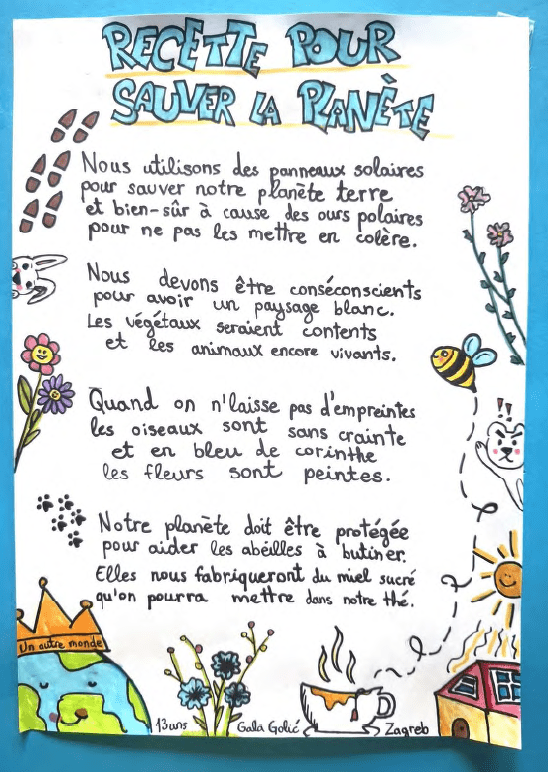 RECETTE POUR
SAUVER LA PLANÈTE
Nous utilisons des panneaux solaires
pour sauver notre planète terre
et bien-sûr à cause des ours polaires
pour ne pas les mettre en colère.
Nous devons être conséconscients
pour avoir un paysage blanc.
Les végétaux seraient contents
et les animaux encore vivants.
Quand on n'laisse pas d'empreintes
les oiseaux sont sans crainte
et en bleu de corinthe
les fleurs sont peintes.
!!
Notre planète doit être protégée
pour aider les abéilles à butiner.
Elles nous fabriqueront du miel sucré
qu'on pourra mettre dans notre thé.
Un autre monde
13 ans Gala Golić Zagreb